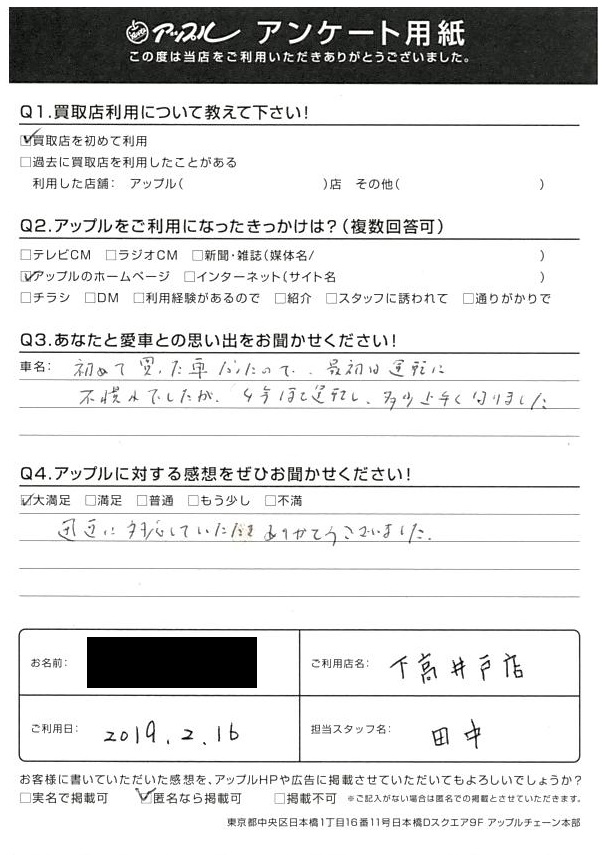 アップル アンケート用紙
この度は当店をご利用いただきありがとうございました。
Q1.買取店利用について教えて下さい!
☑買取店を初めて利用
□過去に買取店を利用したことがある
利用した店舗: アップル( )店 その他( )
Q2.アップルをご利用になったきっかけは?(複数回答可)
□テレビCM □ラジオCM □新聞・雑誌(媒体名/ )
☑アップルのホームページ □インターネット(サイト名 )
□チラシ □DM □利用経験があるので □紹介 □スタッフに誘われて □通りがかりで
Q3.あなたと愛車との思い出をお聞かせください!
車名: 初めて買った車だったので、最初は運転に
不慣れでしたが、4年ほど運転し、多少上手く回りました
Q4.アップルに対する感想をぜひお聞かせください!
☑大満足 □満足 □普通 □もう少し □不満
迅速に対応していただきありがとうございました。
お名前:
ご利用店名: 下高井戸店
ご利用日: 2019.2.16
担当スタッフ名: 田中
お客様に書いていただいた感想を、アップルHPや広告に掲載させていただいてもよろしいでしょうか?
□実名で掲載可 ☑匿名なら掲載可 □掲載不可 ※ご記入がない場合は匿名での掲載とさせていただきます。
東京都中央区日本橋1丁目16番11号日本橋Dスクエア9F アップルチェーン本部